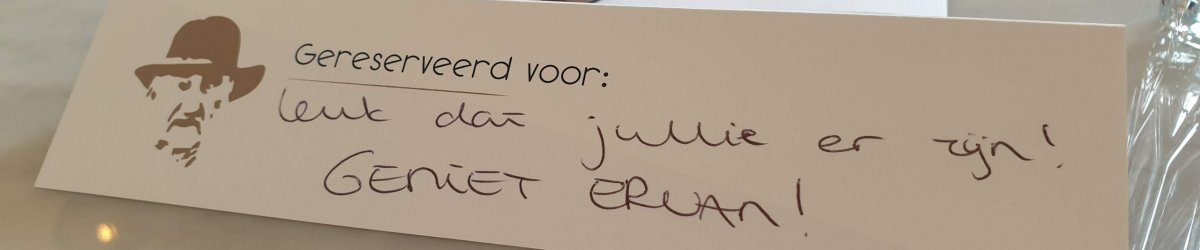 Gereserveerd voor:
leuk dat jullie er zijn!
GENIET ERVAN!